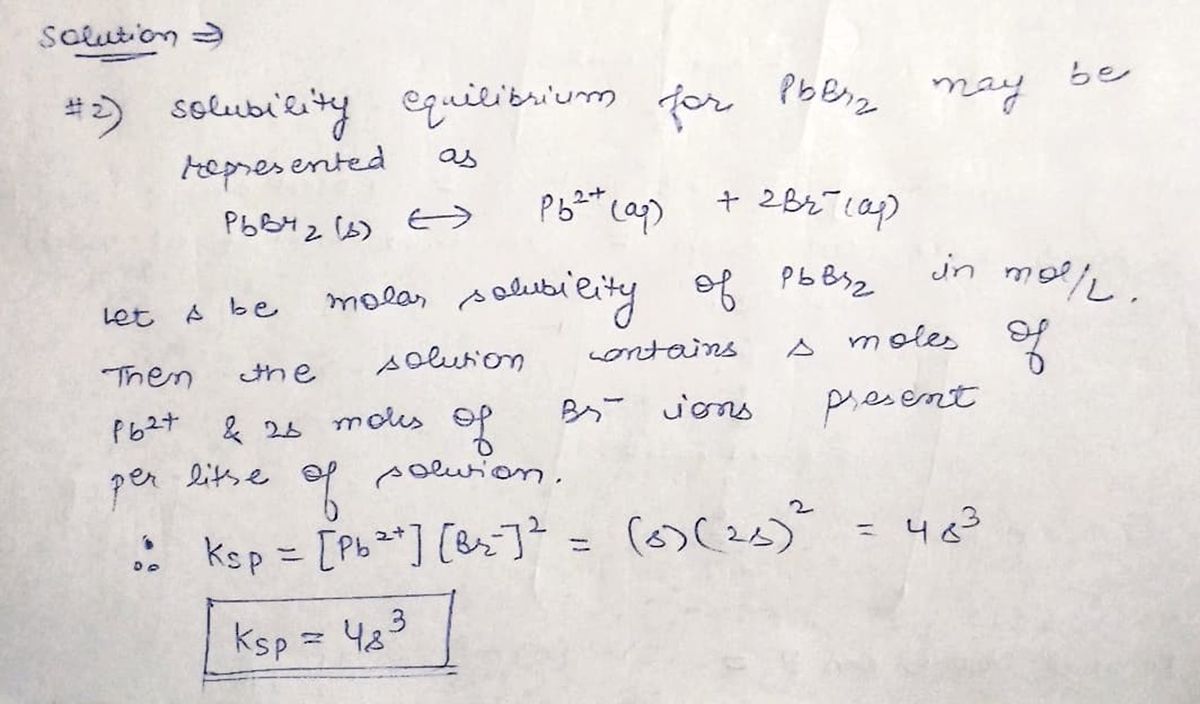 Solution ⇒
#2) solubility equilibrium for PbBr₂ may be
represented as
PbBr₂ (s) ⟷ Pb²⁺ (aq) + 2Br⁻ (aq)
Let s be molar solubility of PbBr₂ in mol/L.
Then the solution contains s moles of
Pb²⁺ & 2s moles of Br⁻ ions present
per litre of solution.
∴ Ksp = [Pb²⁺] [Br⁻]² = (s)(2s)² = 4s³
Ksp = 4s³